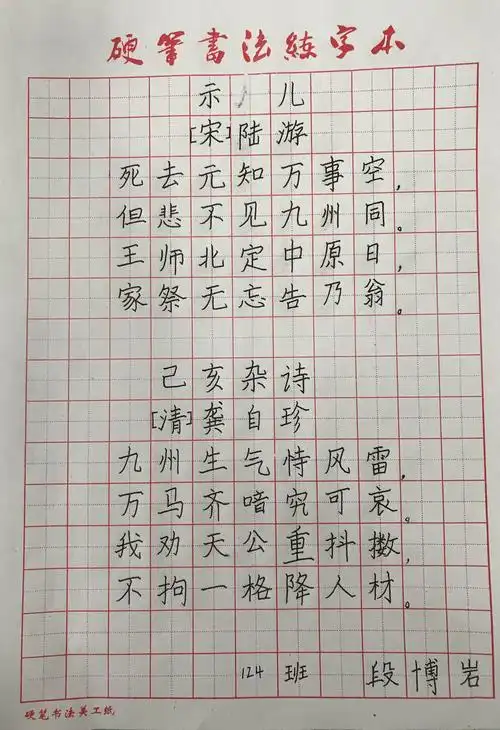 硬筆書法練字本
示儿
[宋]陆游
死去元知万事空,
但悲不见九州同。
王师北定中原日,
家祭无忘告乃翁。
己亥杂诗
[清]龚自珍
九州生气恃风雷,
万马齐喑究可哀。
我劝天公重抖擞,
不拘一格降人材。
124 班 段博岩
硬笔书法美工纸